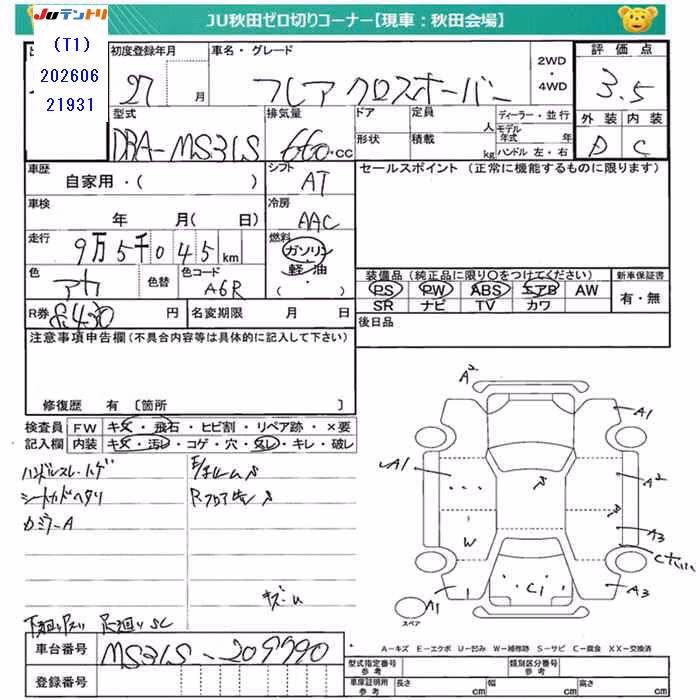 Juテントリ
JU秋田ゼロ切りコーナー【現車：秋田会場】
(T1)
202606
21931
初度登録年月
27 月
車名・グレード
フレア クロスオーバー
2WD
・
4WD
評価点
3.5
外装 内装
D C
型式
DBA-MS31S
排気量
660 .cc
ドア
形状
定員
人
積載
kg
ディーラー・並行
モデル年式 年
ハンドル 左・右
車歴
自家用・( )
シフト
AT
セールスポイント (正常に機能するものに限ります)
車検
年 月( 日)
冷房
AAC
走行
9万5千045km
燃料
ガソリン
軽・油
( )
色
アカ
色替
色コード
A6R
装備品 (純正品に限り○をつけてください)
PS PW ABS エアB AW
SR ナビ TV カワ
新車保証書
有・無
R券 8,430 円
名変期限 月 日
後日品
注意事項申告欄(不具合内容等は具体的に記入して下さい)
修復歴 有 〔箇所 〕
検査員
記入欄
FW キズ・飛石・ヒビ割・リペア跡・×要
内装 キズ・汚レ・コゲ・穴・スレ・キレ・破レ
ハンドルスレ・ハゲ
シートカドヘタリ
カミラーA
キズ・U
下廻りサビ 足廻りSC
A2
A1
A1
A2
A3
W
C1
A1
A3
スペア
A－キズ E－エクボ U－凹み W－補修跡 S－サビ C－腐食 XX－交換済
車台番号
MS31S-209990
登録番号
型式指定番号
参考
類別区分番号
参考
車庫証明用
参考
長さ cm 幅 cm 高さ cm